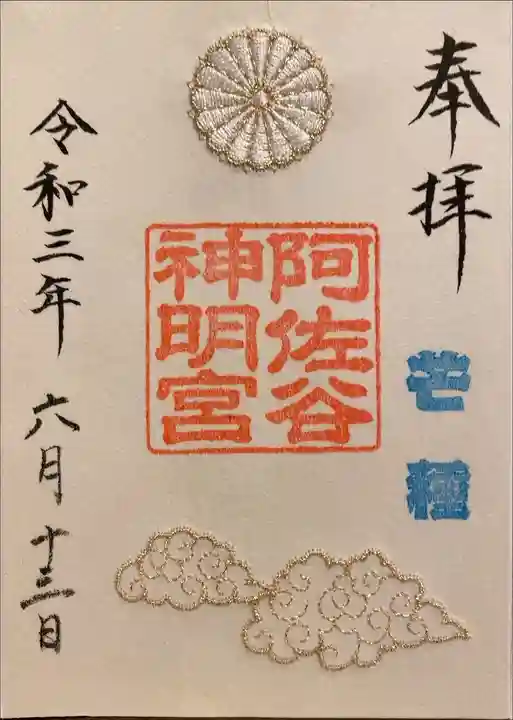 奉拝
芒種
阿佐谷
神明宮
令和三年 六月十三日